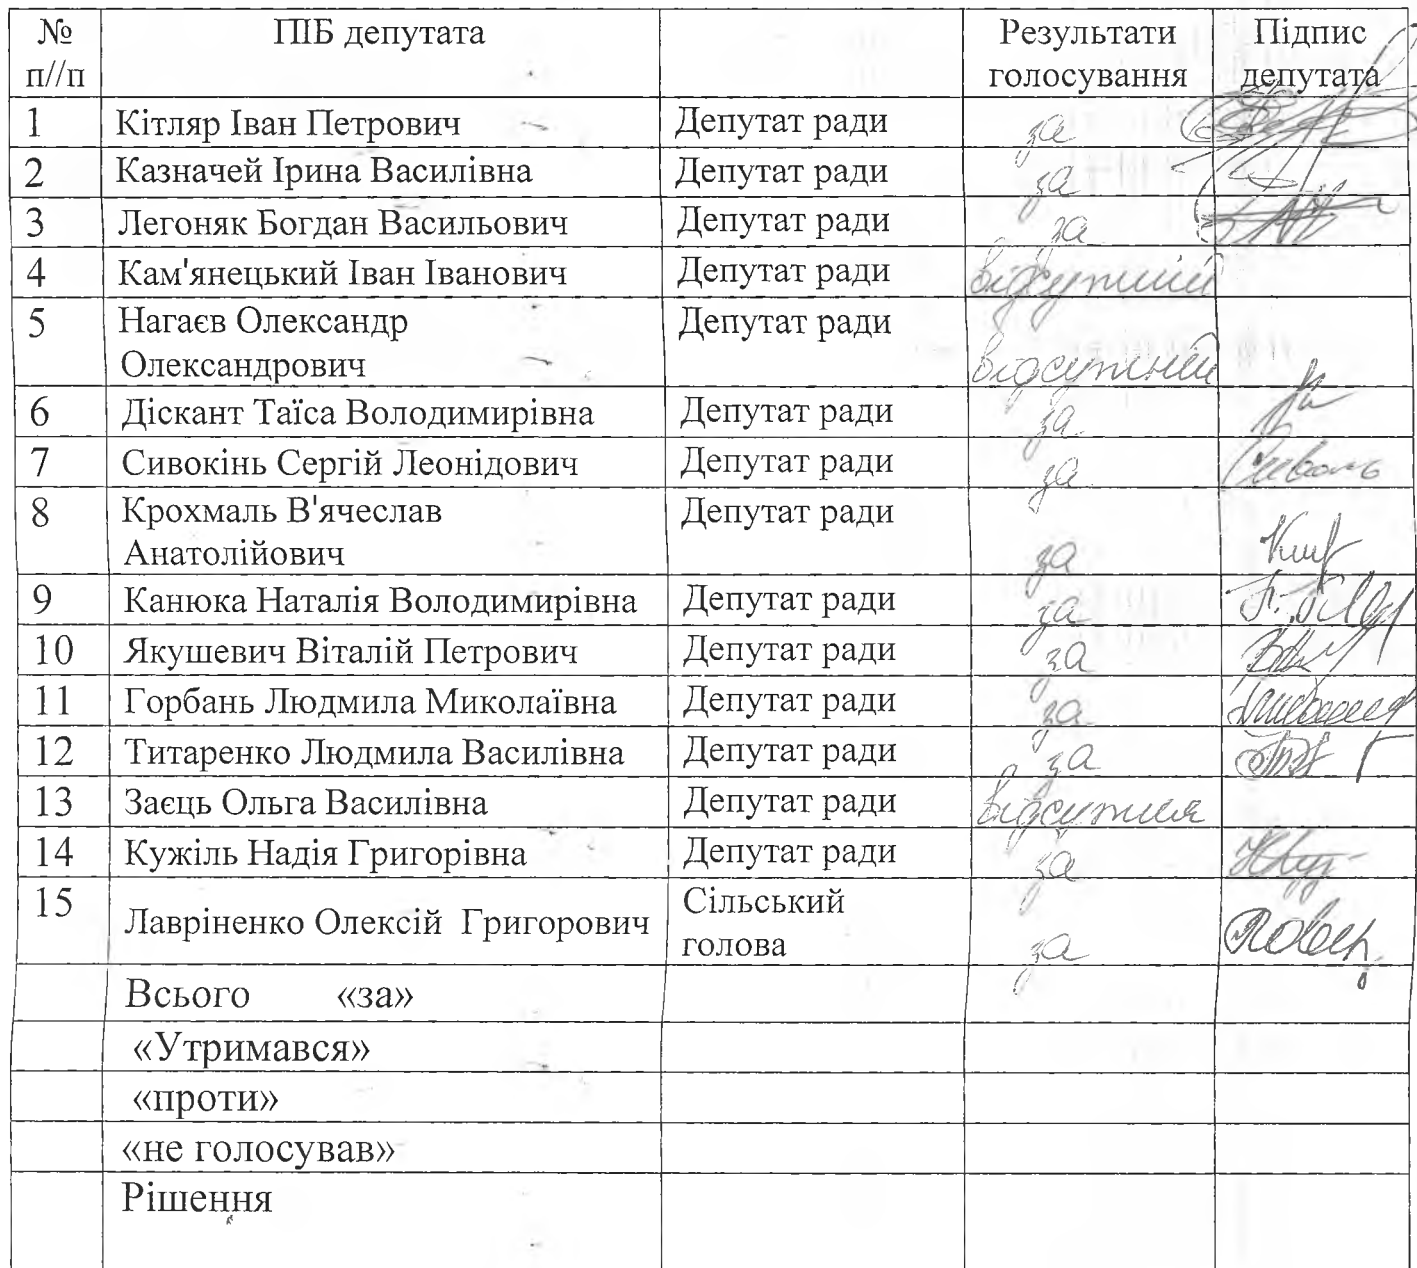 № ПІБ депутата Результати Підпис
п//п голосування депутата
1 Кітляр Іван Петрович Депутат ради за
2 Казначей Ірина Василівна Депутат ради за
3 Легоняк Богдан Васильович Депутат ради за
4 Кам'янецький Іван Іванович Депутат ради відсутній
5 Нагаєв Олександр Депутат ради
Олександрович відсутній
6 Діскант Таїса Володимирівна Депутат ради за
7 Сивокінь Сергій Леонідович Депутат ради за
8 Крохмаль В'ячеслав Депутат ради
Анатолійович за
9 Канюка Наталія Володимирівна Депутат ради за
10 Якушевич Віталій Петрович Депутат ради за
11 Горбань Людмила Миколаївна Депутат ради за
12 Титаренко Людмила Василівна Депутат ради за
13 Заєць Ольга Василівна Депутат ради відсутня
14 Кужіль Надія Григорівна Депутат ради за
15 Лавріненко Олексій Григорович Сільський
голова за
Всього «за»
«Утримався»
«проти»
«не голосував»
Рішення